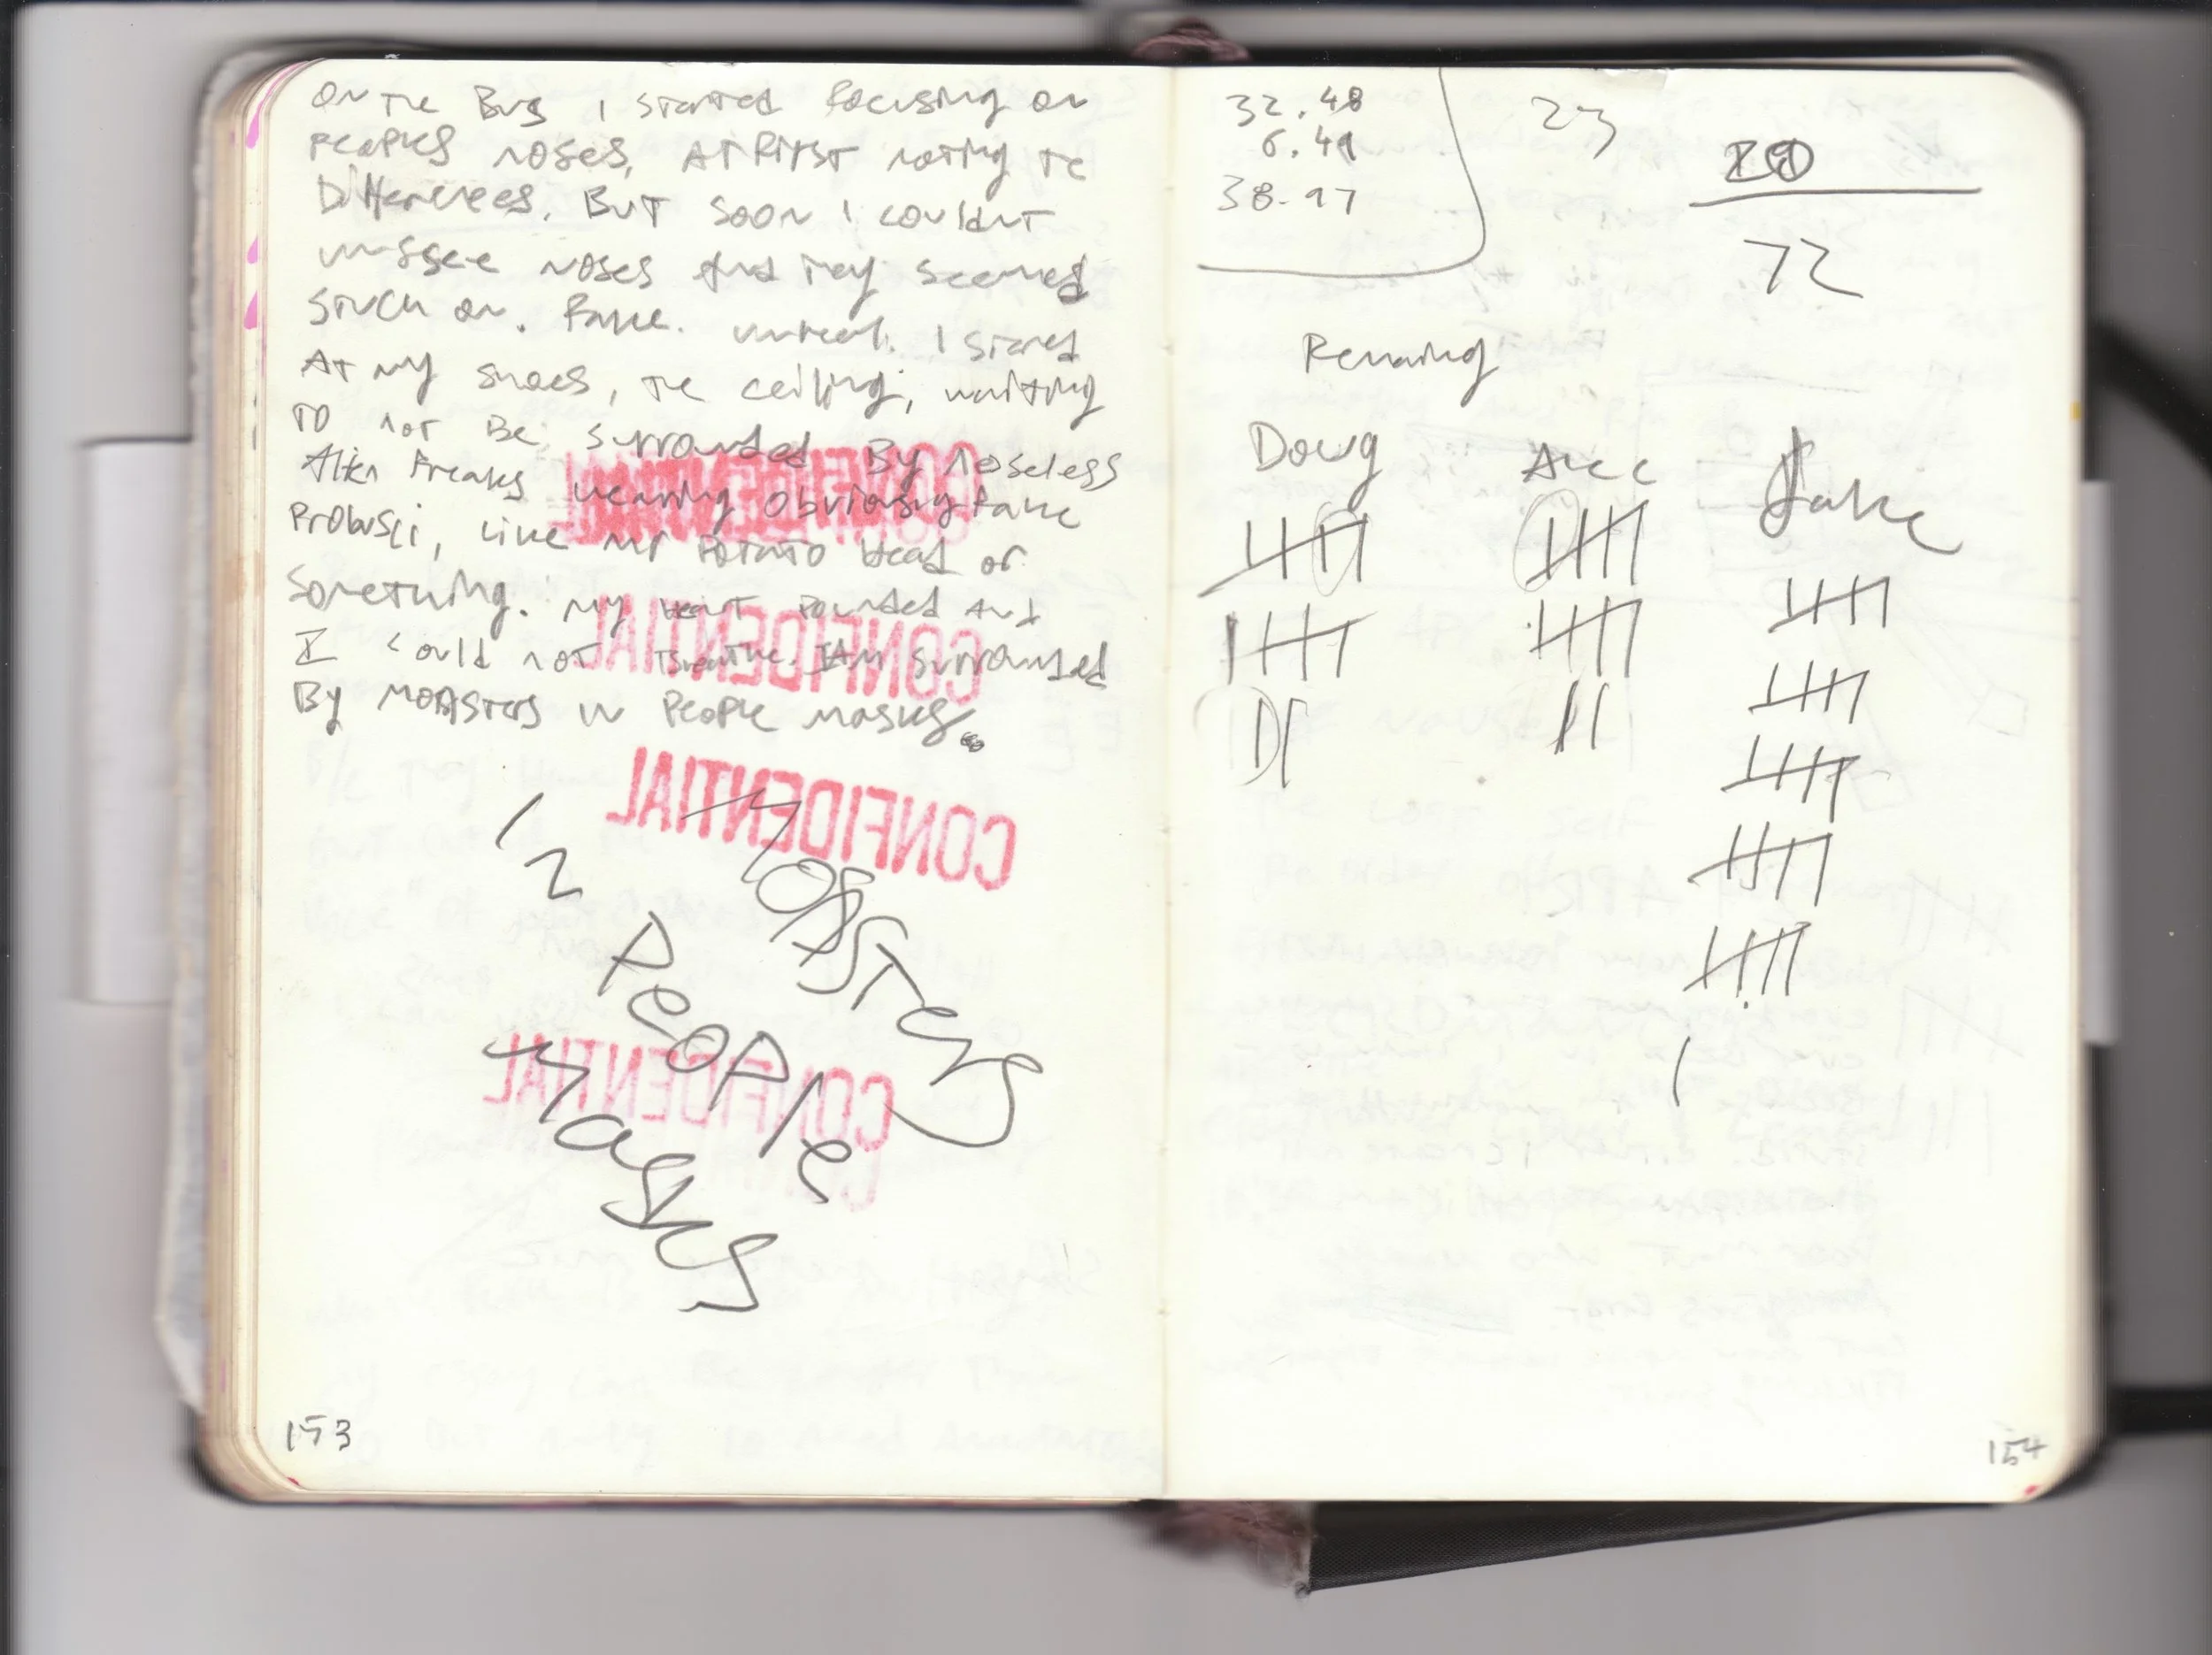 On the Bus I started focusing on
peoples noses, At first noting the
Differences. But soon I couldnt
unsee noses and they seemed
stuck on. Fake. unreal. I stared
At my shoes, the ceiling, waiting
TO not Be surrounded By noseless
Alien Freaks wearing obviously fake
Probusci, like Mr Potato Head or
Something. My heart Pounded And
I could not Breathe. I Am surrounded
By MONSTERS IN People masks.
CONFIDENTIAL
CONFIDENTIAL
CONFIDENTIAL
MONSTERS
IN
People
Masks
CONFIDENTIAL
153
32.48
6.49
38.97
23
72
Remaing
Doug
Alec
Jake
154